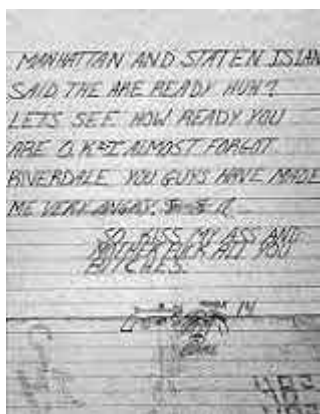 MANHATTAN AND STATEN ISLAN
SAID THE ARE READY HUH?
LETS SEE HOW READY YOU
ARE O.K I ALMOST FORGOT
RIVERDALE YOU GUYS HAVE MADE
ME VERY ANGRY.
SO KISS MY ASS AND
MOTHER FUCK ALL YOU
BITCHES.
14